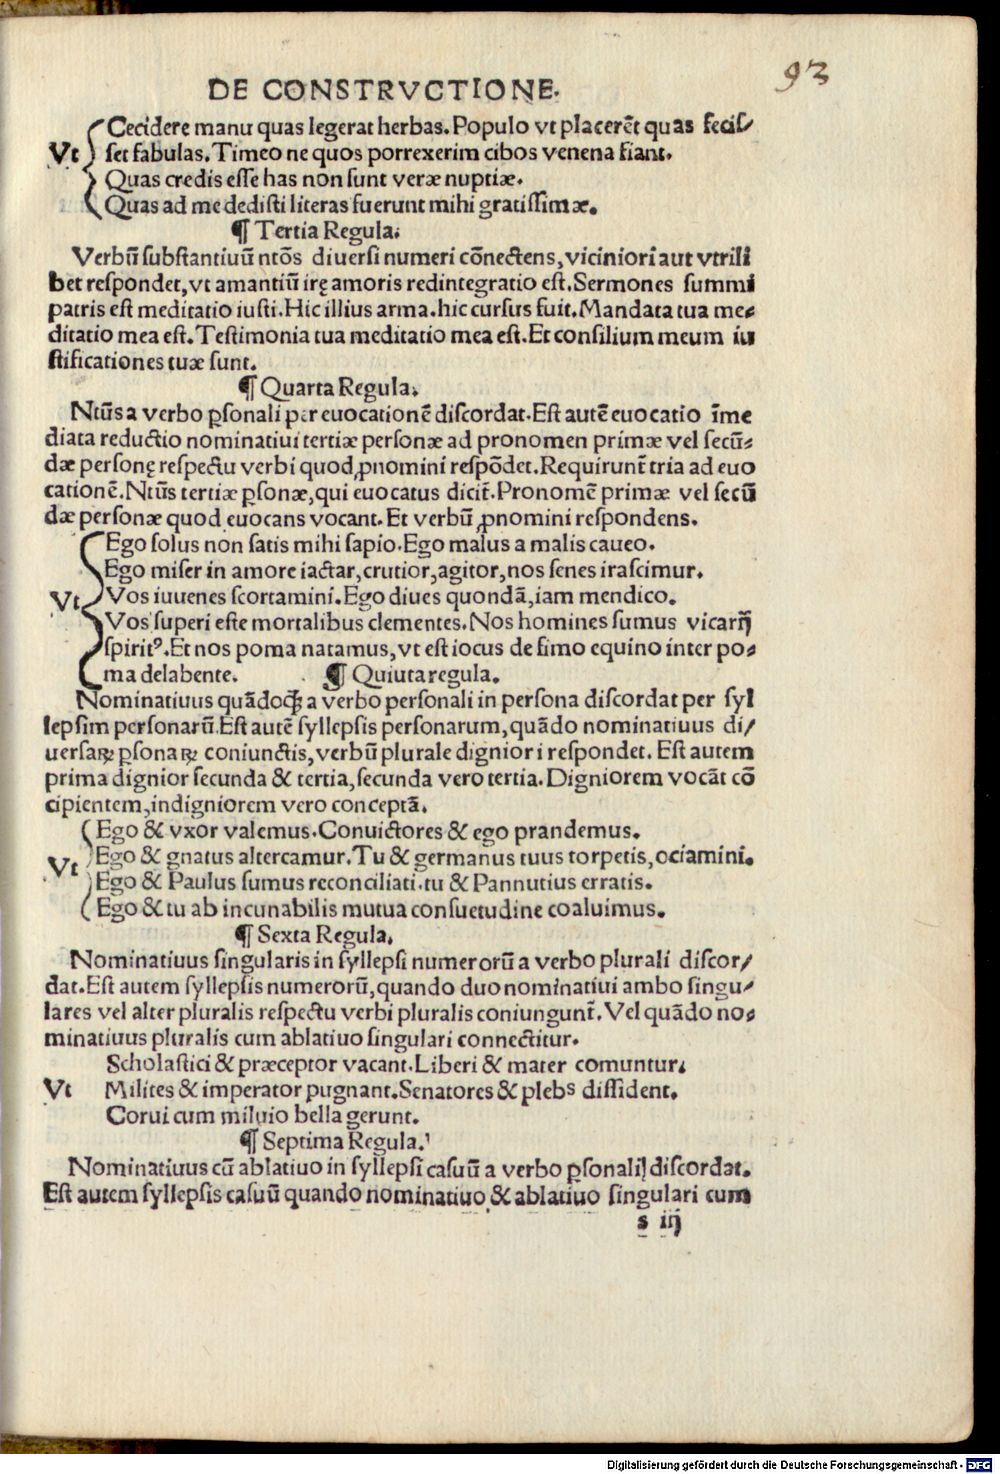 93
DE CONSTRVCTIONE.
Cecidere manu quas legerat herbas. Populo vt placerēt quas fecis/
Vt set fabulas. Timeo ne quos porrexerim cibos venena fiant.
Quas credis esse has non sunt veræ nuptiæ.
Quas ad me dedisti literas fuerunt mihi gratissimæ.
¶ Tertia Regula.
Verbū substantiuū ntōs diuersi numeri cōnectens, viciniori aut vtrili
bet respondet, vt amantiū irę amoris redintegratio est. Sermones summi
patris est meditatio iusti. Hic illius arma. hic cursus fuit. Mandata tua me-
ditatio mea est. Testimonia tua meditatio mea est. Et consilium meum iu
stificationes tuæ sunt.
¶ Quarta Regula.
Ntūs a verbo p̱sonali per euocationē discordat. Est autē euocatio īme
diata reductio nominatiui tertiæ personæ ad pronomen primæ vel secū-
dæ personę respectu verbi quod ꝓnomini respōdet. Requirunt̄ tria ad euo
cationē. Ntūs tertiæ p̱sonæ, qui euocatus dicit̄. Pronomē primæ vel secū
dæ personæ quod euocans vocant. Et verbū ꝓnomini respondens.
Ego solus non satis mihi sapio. Ego malus a malis caueo.
Ego miser in amore iactar, crutior, agitor, nos senes irascimur.
Vt Vos iuuenes scortamini. Ego diues quondā, iam mendico.
Vos superi este mortalibus clementes. Nos homines sumus vicarij
spiritꝰ. Et nos poma natamus, vt est iocus de fimo equino inter po-
ma delabente. ¶ Quiuta regula.
Nominatiuus quādoqꝫ a verbo personali in persona discordat per syl
lepsim personarū. Est autē syllepsis personarum, quādo nominatiuus di/
uersaꝝ p̱sonaꝝ coniunctis, verbū plurale digniori respondet. Est autem
prima dignior secunda & tertia, secunda vero tertia. Digniorem vocāt cō
cipientem, indigniorem vero conceptā.
Ego & vxor valemus. Conuictores & ego prandemus.
Vt Ego & gnatus altercamur. Tu & germanus tuus torpetis, ociamini.
Ego & Paulus sumus reconciliati. tu & Pannutius erratis.
Ego & tu ab incunabilis mutua consuetudine coaluimus.
¶ Sexta Regula.
Nominatiuus singularis in syllepsi numerorū a verbo plurali discor/
dat. Est autem syllepsis numerorū, quando duo nominatiui ambo singu-
lares vel alter pluralis respectu verbi pluralis coniungunt̄. Vel quādo no-
minatiuus pluralis cum ablatiuo singulari connectitur.
Scholastici & præceptor vacant. Liberi & mater comuntur.
Vt Milites & imperator pugnant. Senatores & plebs dissident.
Corui cum miluio bella gerunt.
¶ Septima Regula.
Nominatiuus cū ablatiuo in syllepsi casuū a verbo p̱sonali discordat.
Est autem syllepsis casuū quando nominatiuo & ablatiuo singulari cum
s iij
Digitalisierung gefördert durch die Deutsche Forschungsgemeinschaft - DFG